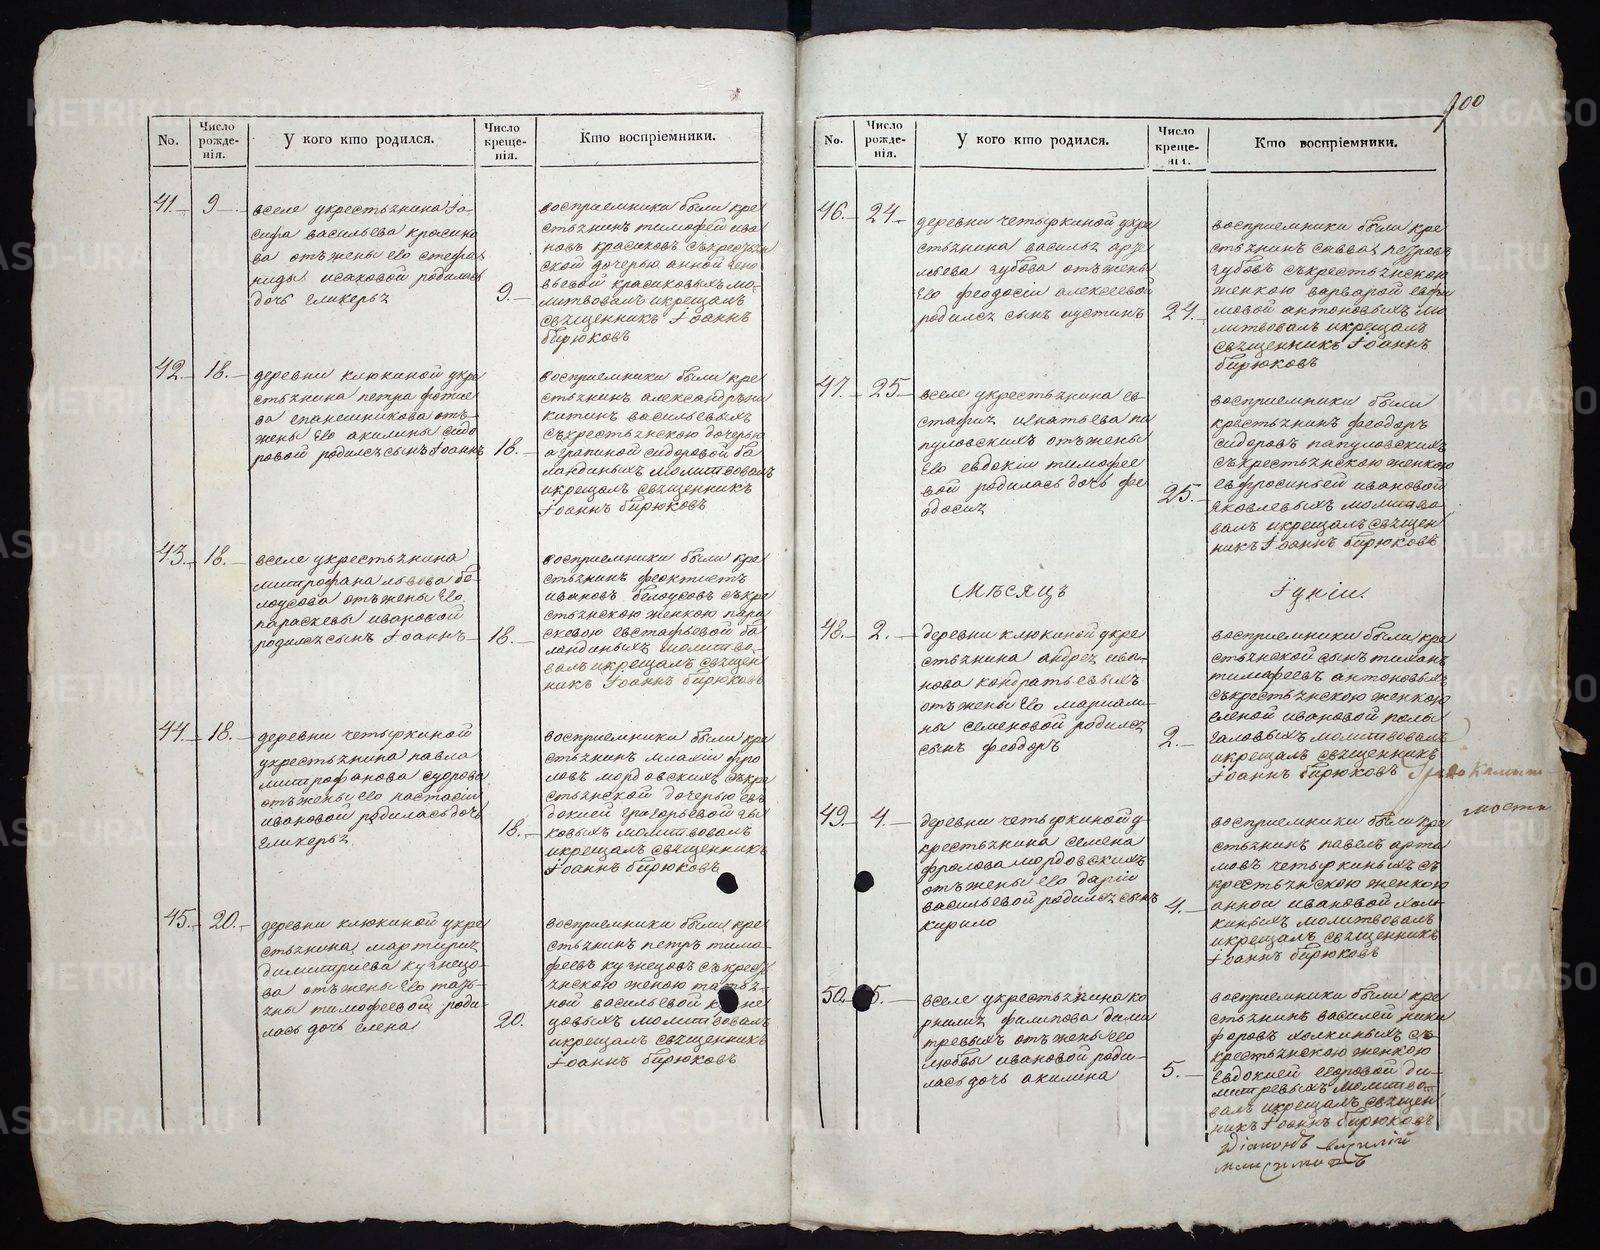 100
No.
Число рожде-нія.
У кого кто родился.
Число креще-нія.
Кто воспріемники.
41.
9
вселе укрестьянина Іо-
сифа васильева красико
ва отъжены его стефа
ниды исаковой родилась
дочь гликерья
9.
восприемники были кре
стьянинъ тимофей ива
новъ красиковъ съкрестьян
ской дочерью анной
красиковыхъ мо-
литвовалъ икрещалъ
священникъ Іоаннъ
бирюковъ
42
18.
деревни клюкиной укре
стьянина петра фотие
ва отъ
жены его акилины сидо
ровой родилсясынъ Іоаннъ
18.
восприемники были кре
стьянинъ александръ ни
китинъ васильевыхъ
съкрестьянскою дочерью
агрипиной сидоровой ба
ландиныхъ молитвовалъ
икрещалъ священникъ
Іоаннъ бирюковъ
43.
18.
вселе укрестьянина
митрофана львова бе
лоусова отъжены его
параскевы ивановой
родилсясынъ Іоаннъ
18.
восприемники были кре
стьянинъ феоктистъ
ивановъ белоусовъ съкре
стьянскою женкою пара
скевою евстафьевой ба
ландиныхъ молитво-
валъ икрещалъ священ
никъ Іоаннъ бирюковъ
44.
18.
деревни четыркиной
укрестьянина павла
митрофанова
отъжены его настасіи
ивановой родиласьдочь
гликерья
18.
восприемники были кре
стьянинъ фро
ловъ мордовскихъ съкре
стьянской дочерью ев
докией григорьевой
ковыхъ молитвовалъ
икрещалъ священникъ
Іоаннъ бирюковъ
45.
20.
деревни клюкиной укре
стьянина мартирия
димитриева кузнецо-
ва отъжены его тать-
яны тимофеевой роди
лась дочь елена
20.
восприемники были кре
стьянинъ петръ тимо
феевъ кузнецовъ съкресть
янскою женою татья-
ной васильевой кузне
цовыхъ молитвовалъ
икрещалъ священникъ
Іоаннъ бирюковъ
No.
Число рожде-нія.
У кого кто родился.
Число креще-нія.
Кто воспріемники.
46.
24
деревни четыркиной укре
стьянина василья арте
мьева зубова отъжены
его феодосіи алексеевой
родился сынъ иустинъ
24.
восприемники были кре
стьянинъ савва петровъ
зубовъ съкрестьянскою
женкою варварой евфи
мовой антоновыхъ мо
литвовалъ икрещалъ
священникъ Іоаннъ
бирюковъ
47.
25
вселе укрестьянина ев-
стафия игнатьева па
пуловскихъ отъжены
его евдокіи тимофее
вой родилась дочь фе
одосия
25.
восприемники были
крестьянинъ феодоръ
сидоровъ папуловскихъ
съкрестьянскою женкою
евфросиньей ивановой
яковлевыхъ молитво
валъ икрещалъ священ
никъ Іоаннъ бирюковъ
Мѣсяцъ Іуніи.
48.
2.
деревни клюкиной укре
стьянина андрея ива-
нова кондратьевыхъ
отъжены его мариам-
ны семеновой родился
сынъ феодоръ
2.
восприемники были кре
стьянской сынъ тихонъ
тимофеевъ антоновыхъ
съкрестьянскою женкою
еленой ивановой
молитвовалъ
икрещалъ священникъ
Іоаннъ бирюковъ
49.
4.
деревни четыркиной у-
крестьянина семена
фролова мордовскихъ
отъжены его дарьи
васильевой родился сынъ
кирило
4.
восприемники были кре
стьянинъ павелъ арта
мовъ четыркиныхъ съ
крестьянскою женкою
анной ивановой хол-
киныхъ молитвовалъ
икрещалъ священникъ
Іоаннъ бирюковъ
50.
5.
вселе укрестьянина ко
рнилия филипова дими
тревыхъ отъжены его
любвы ивановой роди-
лась дочь акилина
5.
восприемники были кре
стьянинъ василей ники
форовъ холкиныхъ съ
крестьянскою женкою
евдокией егоровой ди-
митревыхъ молитво-
валъ икрещалъ священ
никъ Іоаннъ бирюковъ
Діаконъ василій